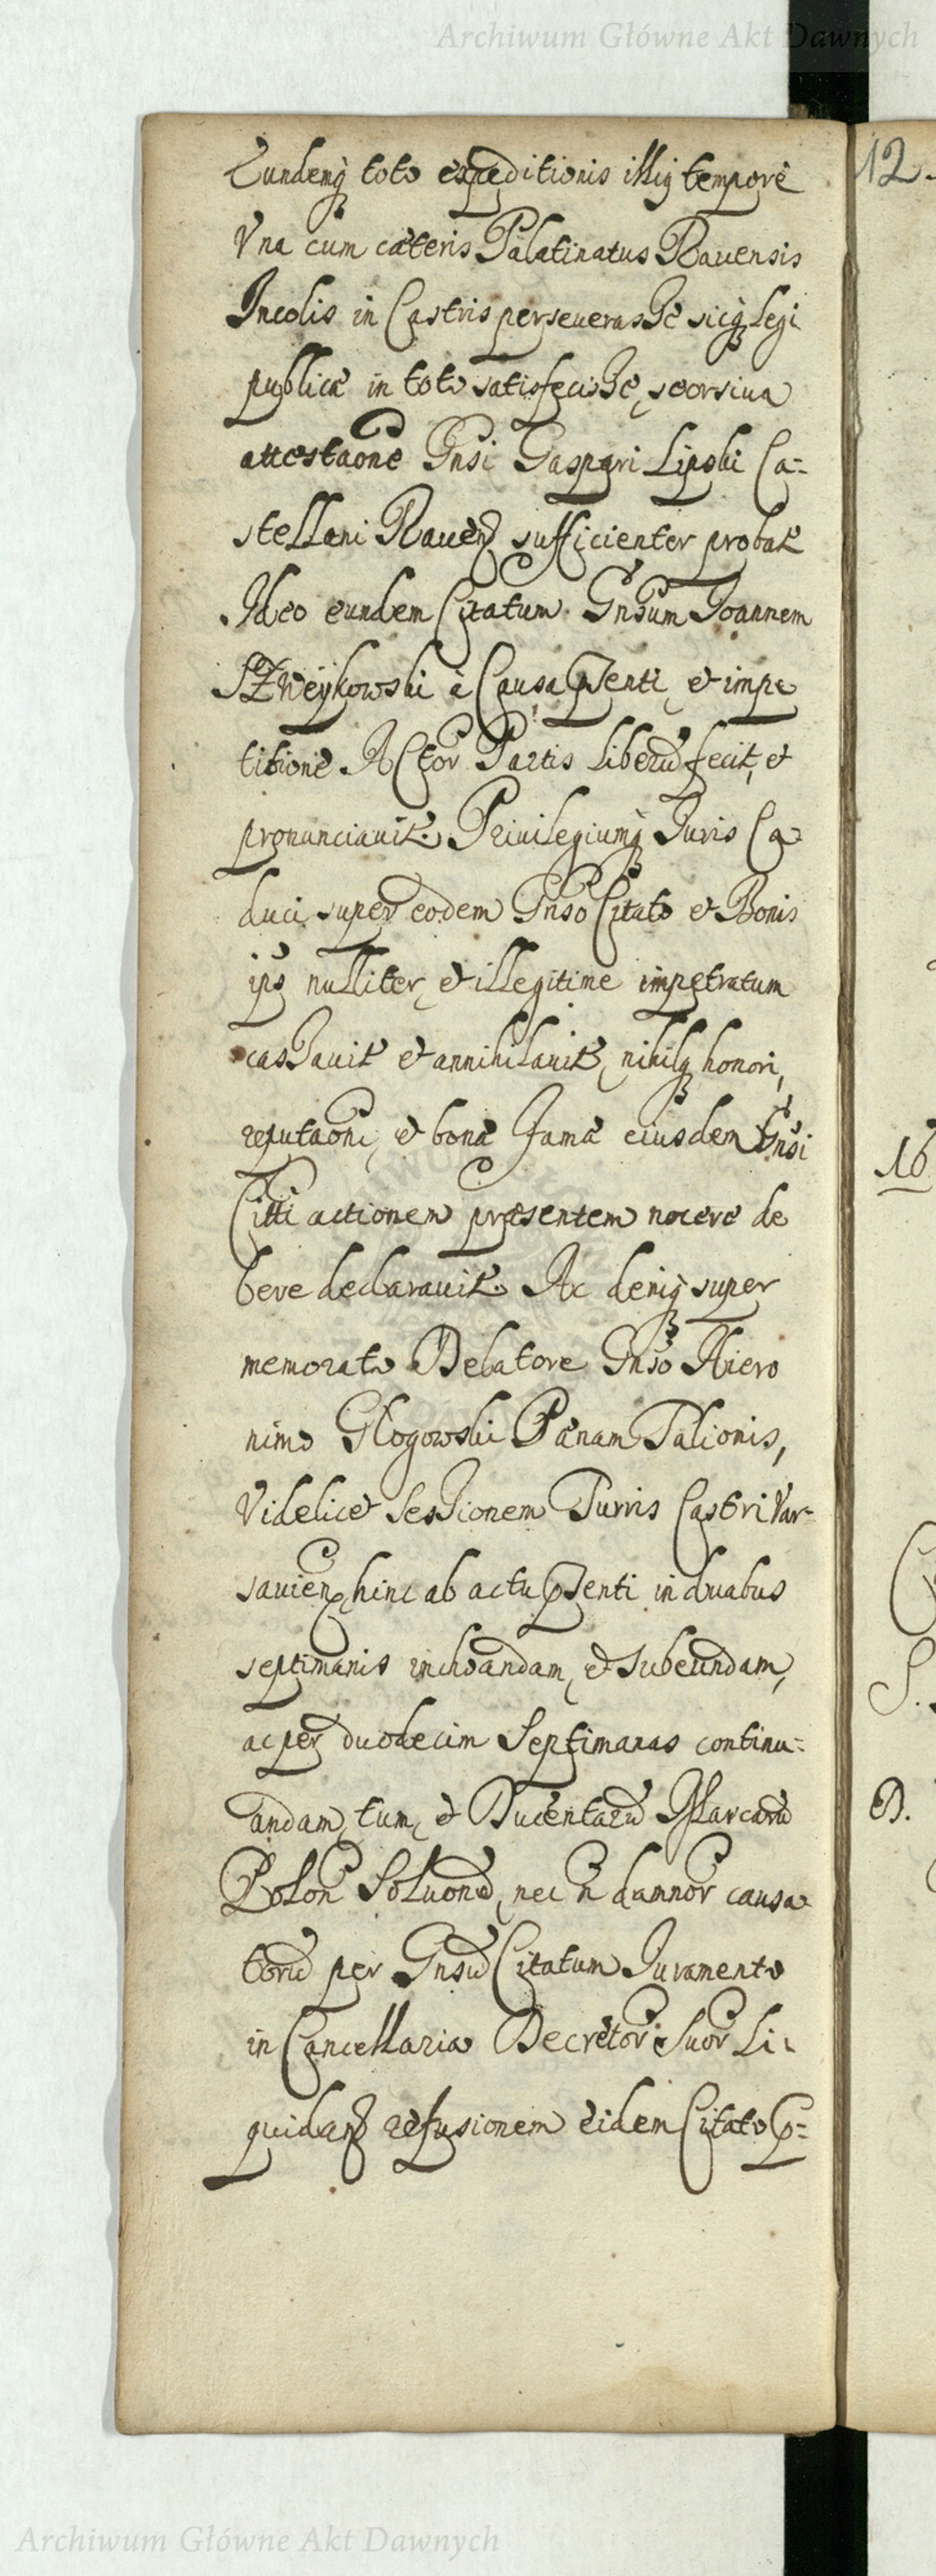 Archiwum Główne Akt Dawnych
Eundemq; toto expeditionis illiq tempore
Vna cum cæteris Palatinatus Rauensis
Incolis in Castris perseuerasse sicq; Legi
publicæ in toto satisfecisse, seorsiua
attestaone Gnsi Gaspari Lipski Ca=
stellani Rauen sufficienter probat
Ideo eundem Citatum Gnsum Joannem
SZweykowski à Causa pnti et impe
titione Actor Partis liberu fecit, et
pronunciauit. Priuilegiumq; Juris Ca
duci super eodem Gnso Citato et Bonis
ips nulliter, et illegitime impetratum
cassauit et annihilauit, nihilq; honori,
reputaoni, et bonæ famæ eiusdem Gnsi
Citti actionem præsentem nocere de
bere declarauit. Ac deniq; super
memorato Delatore Gnso Hiero
nimo Glogowski Pænam Talionis,
Videlicet Sessionem Turris Castri Var=
sauien, hinc ab actu pnti in duabus
septimanis inchoandam, et subeundam,
ac per duodecim Septimanas continu=
andam, tum, et Ducentaru Marcaru
Polon Soluond, nec n damnor causa
toru per Gnsu Citatum Juramento
in Cancellaria Decretor Suor Li=
quidan refusionem eidem Citato p=
12.
16
S.
B.
Archiwum Główne Akt Dawnych